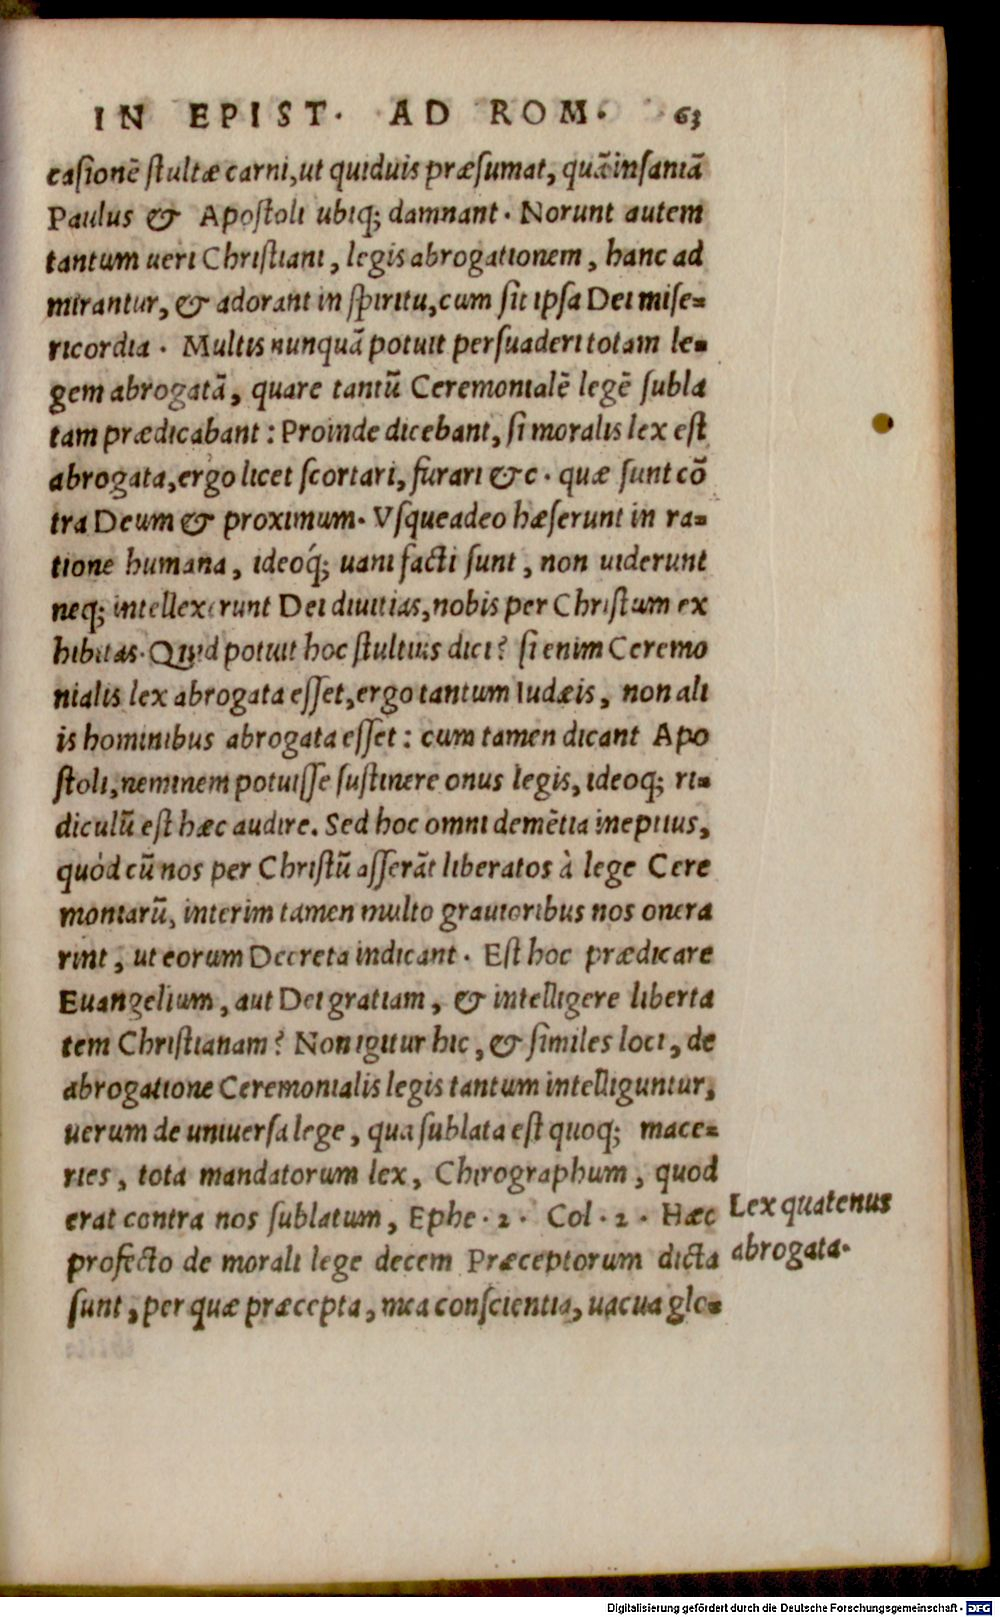 IN EPIST. AD ROM. 63
casionē stultæ carni, ut quiduis præsumat, quā insaniā
Paulus & Apostoli ubiq; damnant. Norunt autem
tantum ueri Christiani, legis abrogationem, hanc ad
mirantur, & adorant in spiritu, cum sit ipsa Dei mise=
ricordia. Multis nunquā potuit persuaderi totam le=
gem abrogatā, quare tantū Ceremonialē legē subla
tam prædicabant: Proinde dicebant, si moralis lex est
abrogata, ergo licet scortari, furari &c. quæ sunt cō
tra Deum & proximum. Vsqueadeo hæserunt in ra=
tione humana, ideoq́; uani facti sunt, non uiderunt
neq; intellexerunt Dei diuitias, nobis per Christum ex
hibitas. Quid potuit hoc stultius dici? si enim Ceremo
nialis lex abrogata esset, ergo tantum Iudæis, non ali
is hominibus abrogata esset: cum tamen dicant Apo
stoli, neminem potuisse sustinere onus legis, ideoq; ri=
diculū est hæc audire. Sed hoc omni demētia ineptius,
quòd cū nos per Christū asserāt liberatos à lege Cere
moniarū, interim tamen multo grauioribus nos onera
rint, ut eorum Decreta indicant. Est hoc prædicare
Euangelium, aut Dei gratiam, & intelligere liberta
tem Christianam? Non igitur hic, & similes loci, de
abrogatione Ceremonialis legis tantum intelliguntur,
uerum de uniuersa lege, qua sublata est quoq; mace=
ries, tota mandatorum lex, Chirographum, quod
erat contra nos sublatum, Ephe. 2. Col. 2. Hæc
profecto de morali lege decem Præceptorum dicta
sunt, per quæ præcepta, mea conscientia, uacua glo=
Lex quatenus
abrogata.
Digitalisierung gefördert durch die Deutsche Forschungsgemeinschaft - DFG